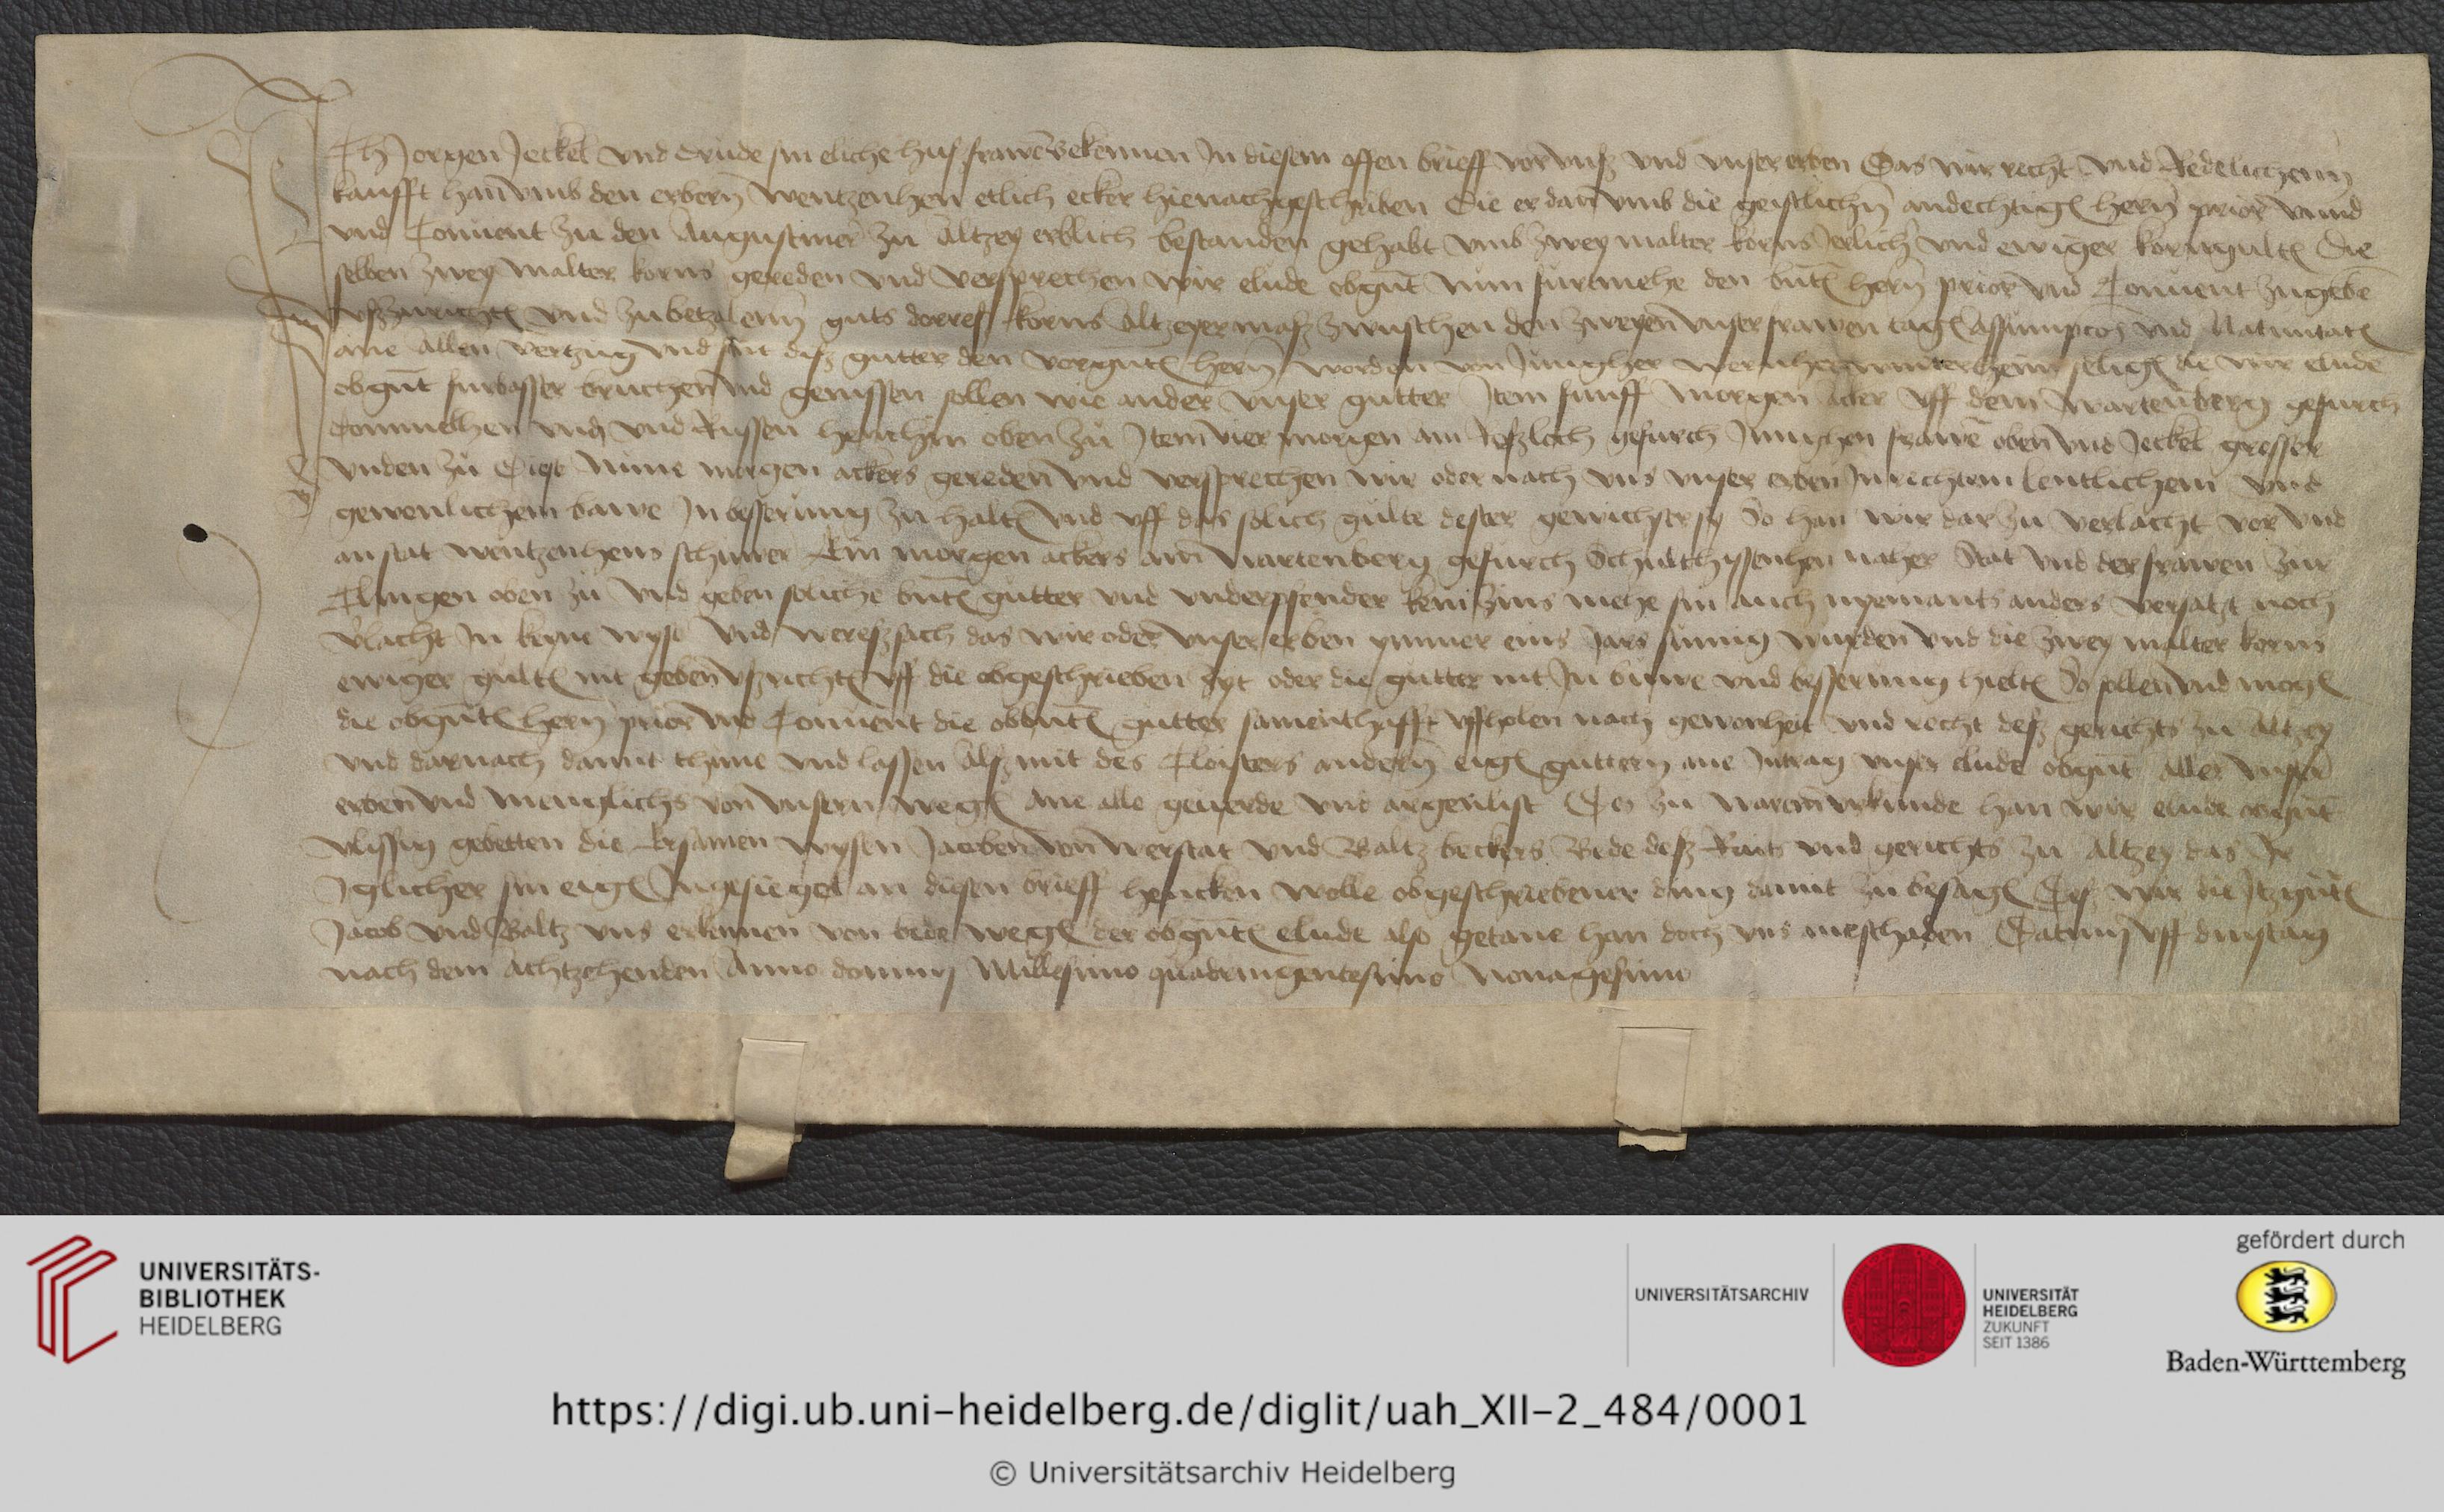 Ich Jorgen Jeckel vnd Drude sin eliche husfrawe bekennen In diesem offen brieff vor vnß vnd vnser erben Das wir recht vnd Redelichenn
kaufft han vmb den erbern Wentzenhen etlich ecker hienachgeschriben Die er dan vmb die geistlichn andechtigen hern prior vnnd
vnd Conuent zu den Augustiner zu Altzey erblich bestanden gehabt vmb zwey malter korns Jerlich vnd ewiger korngulte Die
selben zwey malter korns gereden vnd versprechen wir elude obgnt nun furmehe den bnten hern prior vnd Conuent zugeben
vßzurichten vnd zubetzalenn guts dorres korns Altzeyer maß zwuschen den zweyen vnser frawen tagen assumpcois vnd Natiuitaten
ane allen vertzug vnd sint diß gutter den vorgnten hern worden von Jungher seligen die wir elude
obgnt furbasser bruchen vnd genissen sollen wie ander vnser gutter Item funff morgen acker vff dem Wartenberg gefurch
vnd Russen henchin oben zu Item vier morgen am gefurch frawe oben vnd Jeckel gresser
vnden zu Diese Nune morgen ackers gereden vnd versprechen wir oder nach vns vnser erben In rechtem lentlichem vnd
gewenlichem bawe In besserung zu halten vnd vff das solich gulte dester gewichser sy So han wir dar zu verlacht vor vnd
anstat Wentzenhens schuwer Ein morgen ackers am Wartenberg gefurch Schultthyssenhen naher Stat vnd der frawen zur
Clingen oben zu vnd geben soliche bnten gutter vnd vnderpfender kein zins mehe sin auch nyemants anders versatzt noch
vlacht In keyne wyse vnd wereß sach das wir oder vnser erben ymmer eins Jars sumig wurden vnd die zwey malter korns
ewiger gulten nit geben vßrichten vff die obgeschrieben zyt oder die gutter nit In buwe vnd besserung hielten So sollen vnd mogen
die obgnten hern prior vnd Conuent die obbnten gutter samenthafft vffholen nach gewonheit vnd recht deß gerichts zu Altzey
vnd darnach damit thune vnd lassen Als mit des Closters andern eigen guttern ane Intrag vnser elude obgnt aller vnser
erben vnd menglichs von vnsern wegen Ane alle geuerde vnd argenlist Des zu warem vrkunde han wir elude obgnt
vlissig gebetten die Ersamen wysen Jacoben von Werstat vnd Baltz beckers Bede deß Raits vnd gerichts zu Altzey das Ir
Iglicher sin eigen Ingesiegel an diesen brieff hencken wolle obgeschriebener ding damit zu besagen Des wir die Itzgnten
Jacob vnd Baltz vns erkennen von bede wegen der obgnten elude also getane han doch vns ane schaden Datum vff dinstag
nach dem achtzehenden Anno domini Millesimo quadringentesimo Nonagesimo
UNIVERSITÄTS-
BIBLIOTHEK
HEIDELBERG
UNIVERSITÄTSARCHIV
UNIVERSITÄT
HEIDELBERG
ZUKUNFT
SEIT 1386
gefördert durch
Baden-Württemberg
https://digi.ub.uni-heidelberg.de/diglit/uah_XII-2_484/0001
© Universitätsarchiv Heidelberg